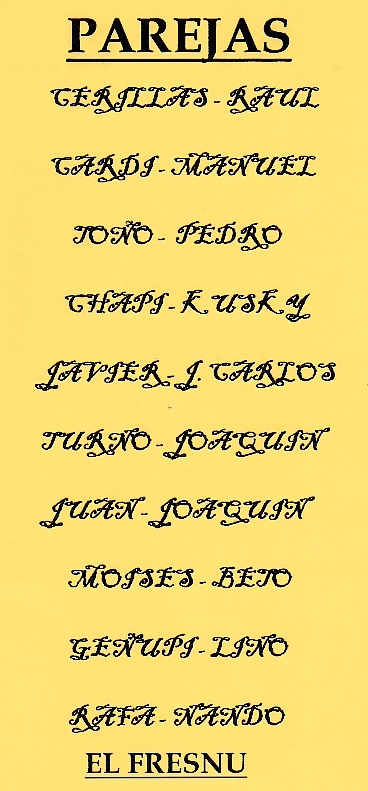 PAREJAS
CERILLAS - RAUL
CARDI - MANUEL
TOÑO - PEDRO
CHAPI - KUSKY
JAVIER - J. CARLOS
TURNO - JOAQUIN
JUAN - JOAQUIN
MOISES - BETO
GEÑUPI - LINO
RAFA - NANDO
EL FRESNU